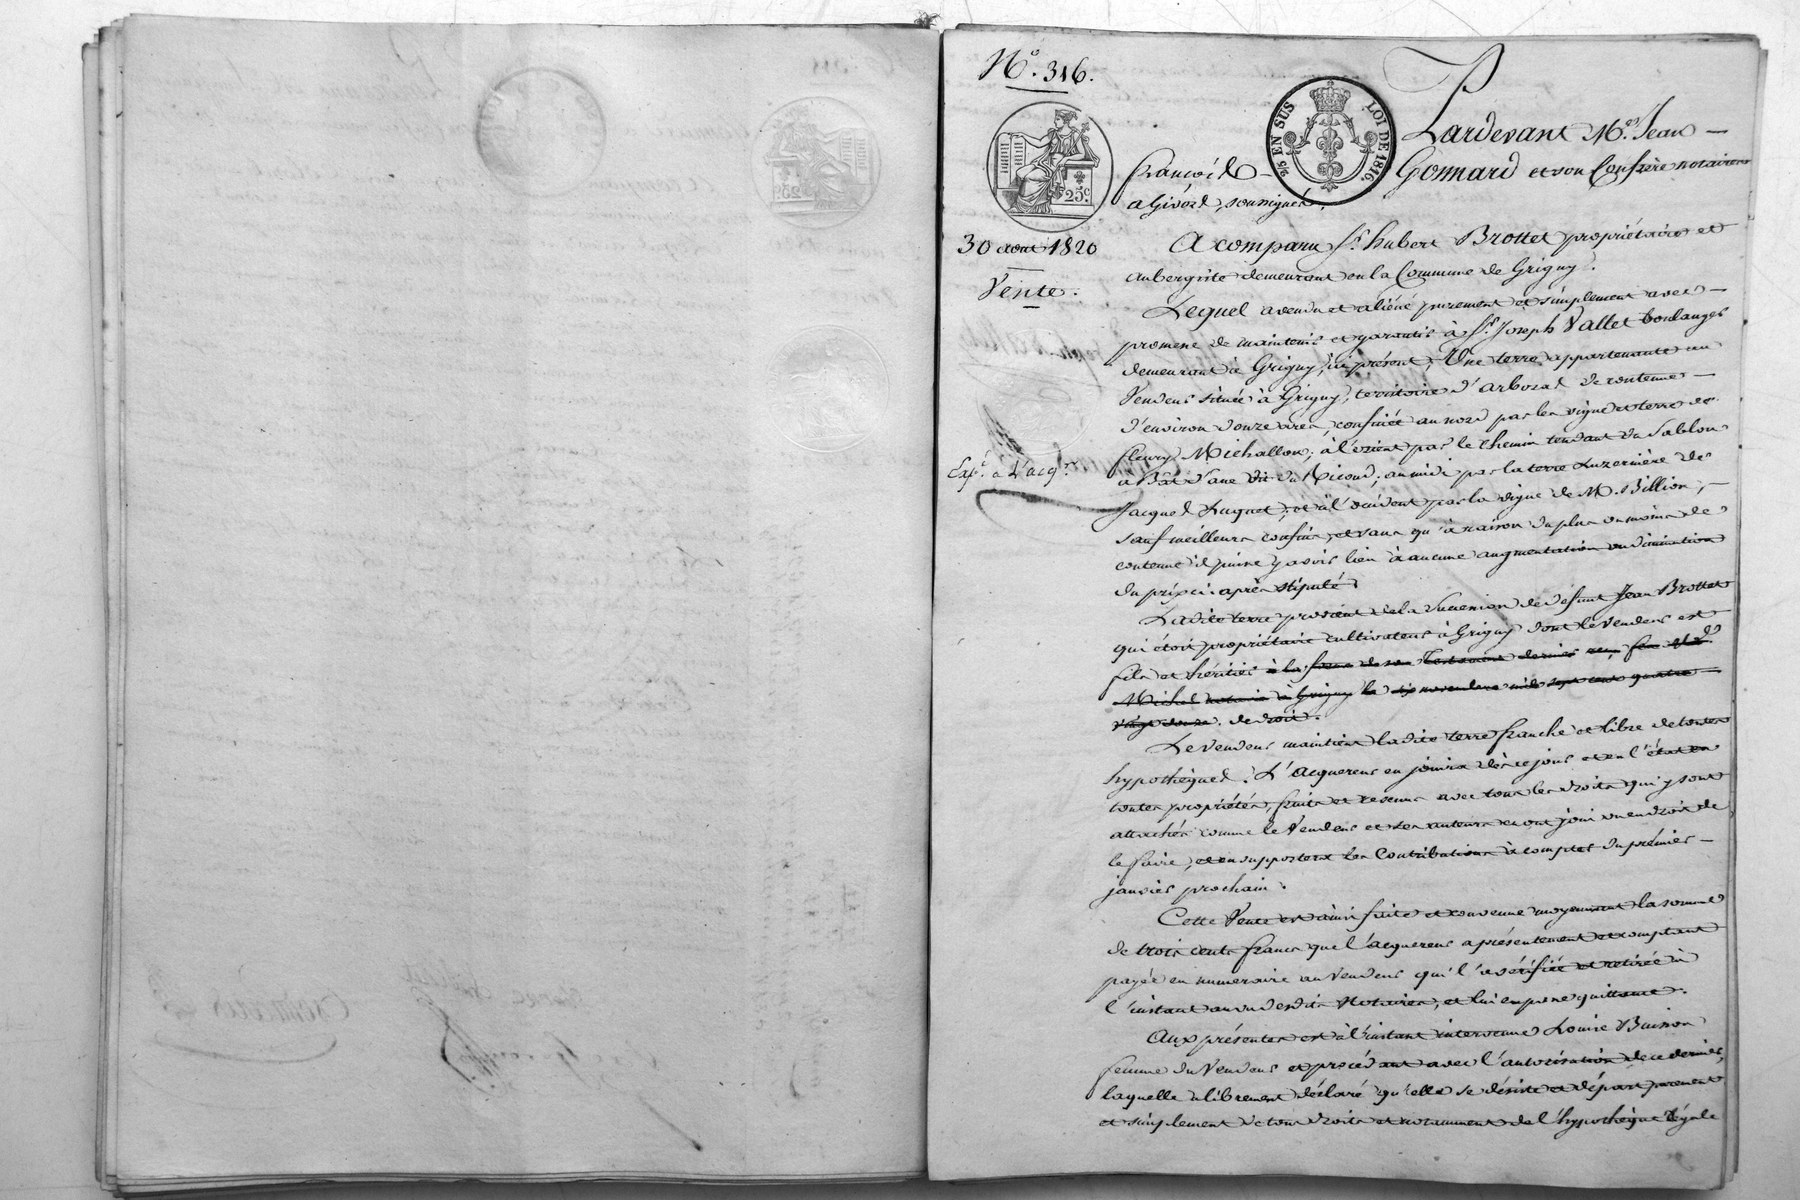 N.° 316.
25.c
2/5 EN SUS
LOI DE 1816.
30 aout 1820
Vente.
Exp.é à l'acq.r
Pardevant M.es Jean
françois Gonnard et son Confrère notaires
a Givors, soussignés.
A comparu S.r hubert Brottet propriétaire et
aubergiste demeurant en la Commune de Grigny.
Lequel a vendu et aliéné purement et simplement avec
promesse de maintenir et garantir à S.r Joseph Vallet boulanger
demeurant à Grigny, ici présent, Une terre appartenante au
Vendeur située à Grigny, territoire d'arboras de contenue
d'environ douze ares, confinée au nord par les vigne et terre de
fleury Michallon; à l'orient par le chemin tendant du Sablon
à Bat d'ane dit du Ricoud; au midi par la terre Luzernière de
Jacques Luquet; et à l'occident par la vigne de M. Billion,
sauf meilleurs confins, et sans qu'à raison du plus ou moins de
contenue il puisse y avoir lieu à aucune augmentation ou diminution
du prix ci après stipulé.
Ladite terre provient de la Succession de défunt Jean Brottet
qui étoit propriétaire cultivateur à Grigny dont le Vendeur est
fils et héritier à la forme de son Testament dernier reçu feu
Michel notaire à Grigny le six novembre mil sept cent quatre
vingt douze. de droit.
Le Vendeur maintient ladite terre franche et libre de toutes
hypothèques. L'acquereur en jouira dès ce jour et en l'état en
toutes propriétés, fruits et revenus avec tous les droits qui y sont
attachés comme le Vendeur et ses auteurs en ont joui ou eu droit de
le faire, et en supportera les Contributions à compter du premier
janvier prochain.
Cette Vente est ainsi faite et convenue moyennant la somme
de trois cents francs que l'acquereur a présentement et comptant
payée en numeraire au Vendeur qui l'a vérifiée et retirée à
l'instant au vu desdits Notaires, et lui en passe quittance.
Aux présentes est à l'instant intervenue Louise Buisson
femme du Vendeur et procédant avec l'autorisation de ce dernier,
laquelle a librement déclaré qu'elle se désiste et départ purement
et simplement de tous droits et notamment de l'hypothèque légale